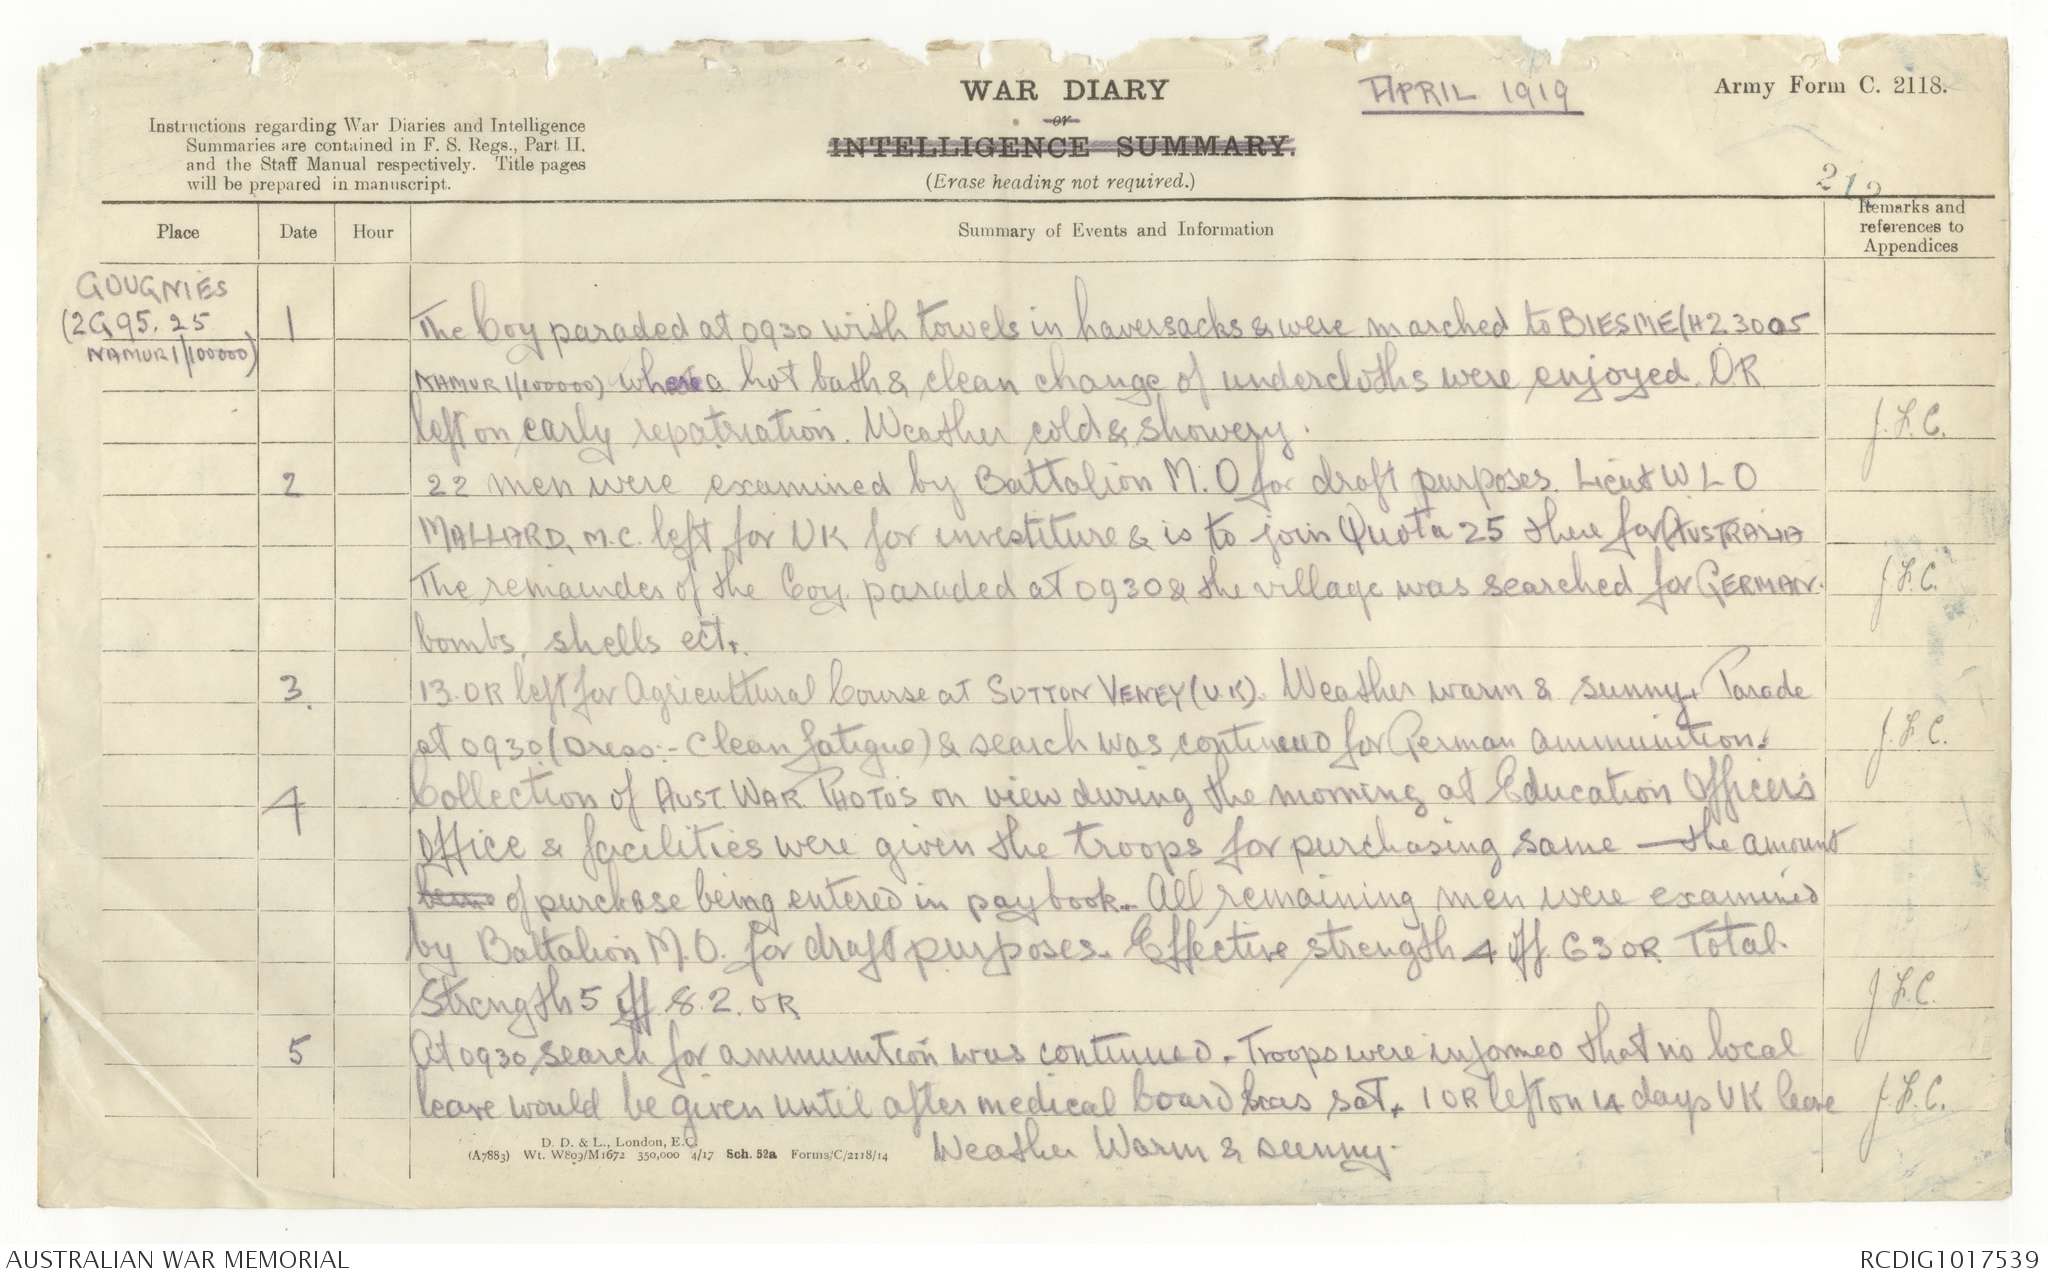 WAR DIARY
or
INTELLIGENCE SUMMARY.
(Erase heading not required.)
APRIL 1919
Army Form C. 2118.
Instructions regarding War Diaries and Intelligence
Summaries are contained in F. S. Regs., Part II.
and the Staff Manual respectively. Title pages
will be prepared in manuscript.
212
Place
Date
Hour
Summary of Events and Information
Remarks and
references to
Appendices
GOUGNIES
(2G95.25
NAMUR 1/100000)
1
The Coy paraded at 0930 with towels in haversacks & were marched to BIESME (H23005
NAMUR 1/100000) where a hot bath & clean change of undercloths were enjoyed. OR
left on early repatriation. Weather cold & showery.
J.F.C.
2
22 men were examined by Battalion M.O for draft purposes. Lieut W L O
MALLARD, M.C. left for UK for investiture & is to join Quota 25 there for AUSTRALIA
The remainder of the Coy. paraded at 0930 & the village was searched for GERMAN.
bombs, shells ect.
J.F.C.
3.
13.OR left for Agricultural Course at SUTTON VENEY (U.K). Weather warm & sunny. Parade
at 0930 (Dress:- Clean fatigue) & search was continued for German ammunition.
J.F.C.
4
Collection of AUST. WAR PHOTOS on view during the morning at Education Officers
Office & facilities were given the troops for purchasing same — the amount
of purchase being entered in paybook. All remaining men were examined
by Battalion M.O. for draft purposes. Effective strength 4 Off 63 OR Total.
Strength 5 Off 82. OR
J.F.C.
5
At 0930 search for ammunition was continued. Troops were informed that no local
leave would be given until after medical board has sat. 1 OR left on 14 days UK leave
Weather Warm & sunny.
J.F.C.
D. D. & L., London, E.C.
(A7883) Wt. W809/M1672 350,000 4/17 Sch. 52a Forms/C/2118/14
AUSTRALIAN WAR MEMORIAL
RCDIG1017539